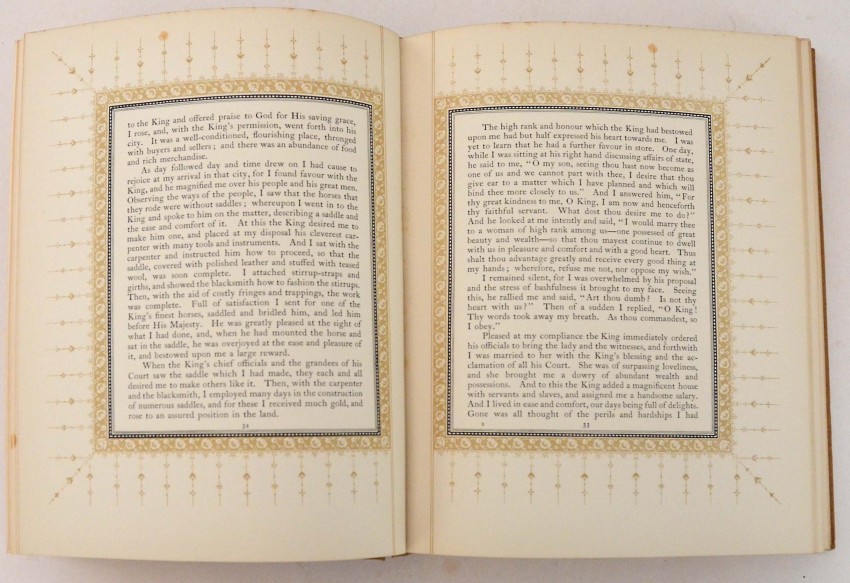 to the King and offered praise to God for His saving grace,
I rose, and, with the King's permission, went forth into his
city. It was a well-conditioned, flourishing place, thronged
with buyers and sellers; and there was an abundance of food
and rich merchandise.
As day followed day and time drew on I had cause to
rejoice at my arrival in that city, for I found favour with the
King, and he magnified me over his people and his great men.
Observing the ways of the people, I saw that the horses that
they rode were without saddles; whereupon I went in to the
King and spoke to him on the matter, describing a saddle and
the ease and comfort of it. At this the King desired me to
make him one, and placed at my disposal his cleverest car-
penter with many tools and instruments. And I sat with the
carpenter and instructed him how to proceed, so that the
saddle, covered with polished leather and stuffed with teased
wool, was soon complete. I attached stirrup-straps and
girths, and showed the blacksmith how to fashion the stirrups.
Then, with the aid of costly fringes and trappings, the work
was complete. Full of satisfaction I sent for one of the
King's finest horses, saddled and bridled him, and led him
before His Majesty. He was greatly pleased at the sight of
what I had done, and, when he had mounted the horse and
sat in the saddle, he was overjoyed at the ease and pleasure of
it, and bestowed upon me a large reward.
When the King's chief officials and the grandees of his
Court saw the saddle which I had made, they each and all
desired me to make others like it. Then, with the carpenter
and the blacksmith, I employed many days in the construction
of numerous saddles, and for these I received much gold, and
rose to an assured position in the land.
The high rank and honour which the King had bestowed
upon me had but half expressed his heart towards me. I was
yet to learn that he had a further favour in store. One day,
while I was sitting at his right hand discussing affairs of state,
he said to me, "O my son, seeing thou hast now become as
one of us and we cannot part with thee, I desire that thou
give ear to a matter which I have planned and which will
bind thee more closely to us." And I answered him, "For
thy great kindness to me, O King, I am now and henceforth
thy faithful servant. What dost thou desire me to do?"
And he looked at me intently and said, "I would marry thee
to a woman of high rank among us—one possessed of great
beauty and wealth—so that thou mayest continue to dwell
with us in pleasure and comfort and with a good heart. Thus
shalt thou advantage greatly and receive every good thing at
my hands; wherefore, refuse me not, nor oppose my wish."
I remained silent, for I was overwhelmed by his proposal
and the stress of bashfulness it brought to my face. Seeing
this, he rallied me and said, "Art thou dumb? Is not thy
heart with us?" Then of a sudden I replied, "O King!
Thy words took away my breath. As thou commandest, so
I obey."
Pleased at my compliance the King immediately ordered
his officials to bring the lady and the witnesses, and forthwith
I was married to her with the King's blessing and the ac-
clamation of all his Court. She was of surpassing loveliness,
and she brought me a dowry of abundant wealth and
possessions. And to this the King added a magnificent house
with servants and slaves, and assigned me a handsome salary.
And I lived in ease and comfort, our days being full of delights.
Gone was all thought of the perils and hardships I had
33